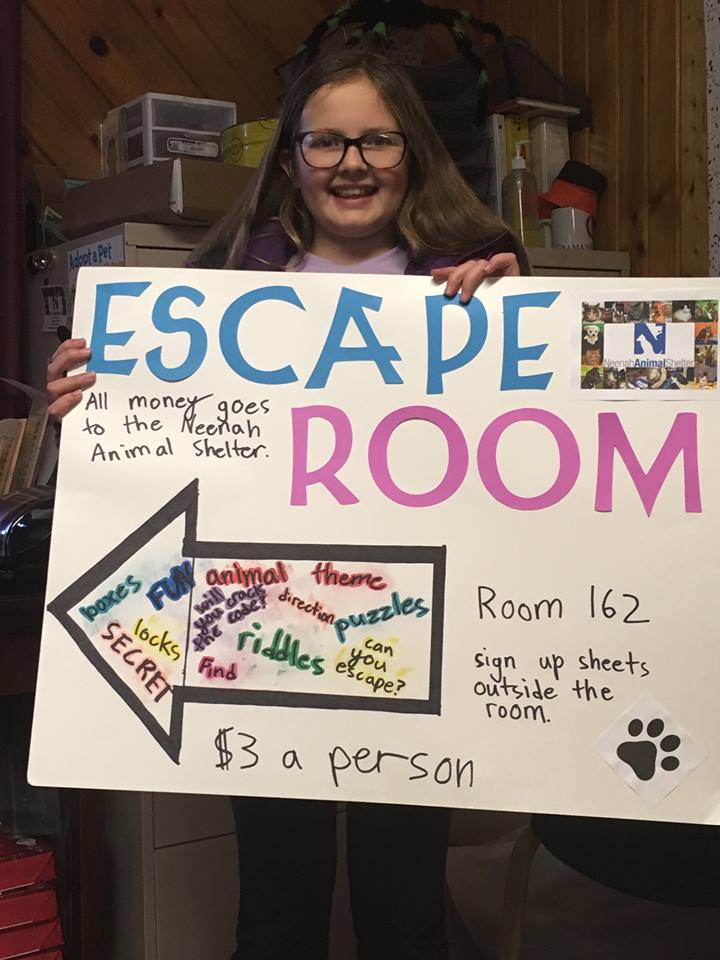 Adopt a Pet
ESCAPE
ROOM
N
Neenah Animal Shelter
All money goes
to the Neenah
Animal Shelter.
boxes
FUN
animal theme
will
you crack
the code?
direction
puzzles
locks
SECRET
riddles
Find
can
you
escape?
Room 162
sign up sheets
outside the
room.
$3 a person